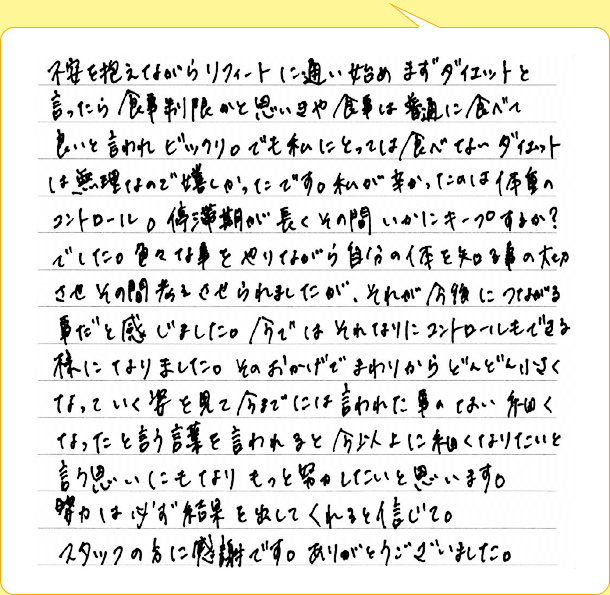 不安を抱えながらリフィートに通い始めまずダイエットと
言ったら食事制限かと思いきや食事は普通に食べて
良いと言われビックリ。でも私にとっては食べないダイエット
は無理なので嬉しかったです。私が辛かったのは体重の
コントロール。停滞期が長くその間いかにキープするか?
でした。色々な事をやりながら自分の体を知る事の大切
さをその間考えさせられましたが、それが今後につながる
事だと感じました。今ではそれなりにコントロールもできる
様になりました。そのおかげでまわりからどんどん小さく
なっていく姿を見て今までには言われた事のない細く
なったと言う言葉を言われると今以上に細くなりたいと
言う思いにもなりもっと努力したいと思います。
努力は必ず結果を出してくれると信じて。
スタッフの方に感謝です。ありがとうございました。